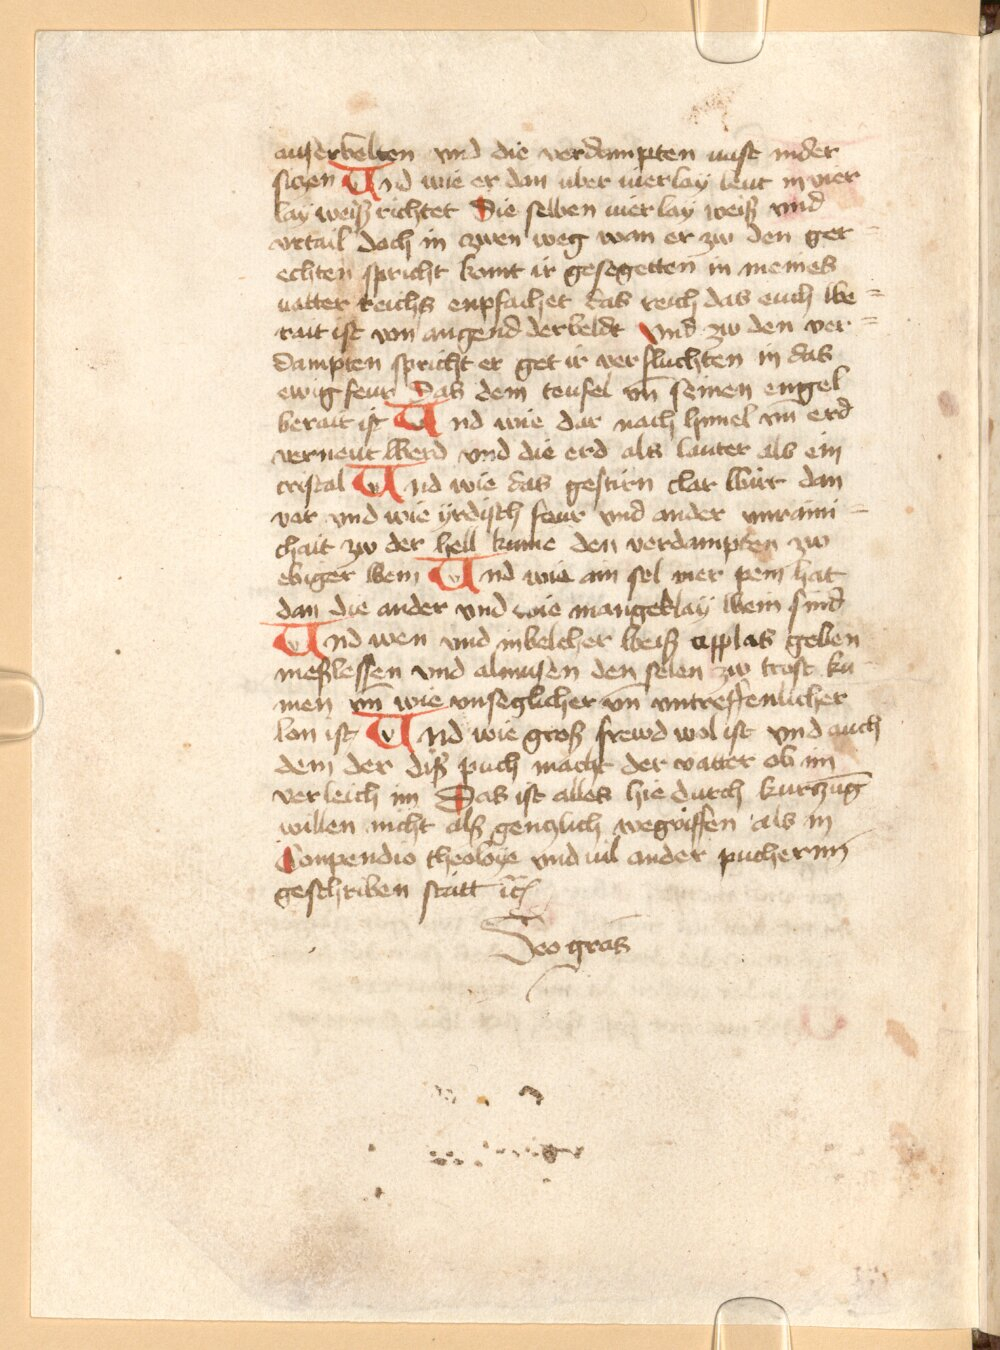 auserbelten vnd die verdampten must nider
siczen Vnd wie er dan vber vierlay leut in vier
lay weiß richtet Die selben vierlay weiß vnd
vrtail doch in czwen weg wan er zw den ger
echten spricht komt ir gesegetten in meines
vatter reichs enpfachet das reich das euch be=
rait ist von angend der beldt Vnd zw den ver=
dampten spricht er get ir verfluchten in das
ewig feur Das dem teufel vn̄ seinen engel
berait ist Vnd wie dar nach himel vn̄ erd
verneut werd vnd die erd als lauter als ein
cristal Vnd wie das gestirn clar wirr dan
vor vnd wie yrdisch feur vnd ander vnraini-
chait zw der hell kume den verdampten zw
ebiger bein Vnd wie ain sel mer pein hat
dan die ander vnd wie mangeklay bein sind
Vnd wen vnd in belcher beiß applas geben
meßlessen vnd almusen den selen zw trost ku
men vn̄ wie vnseglicher vn̄ vntreffenlicher
lon ist Vnd wie groß frewd wol ist vnd auch
dem der diß puch macht der vatter ob im
verleich im Das ist alles hie durch kurczung
willen nicht alß genczlich wegriffen als in
Conpendio theoloye vnd vil ander pucher inn
geschriben statt ꝛc̄
Deo gr̄as